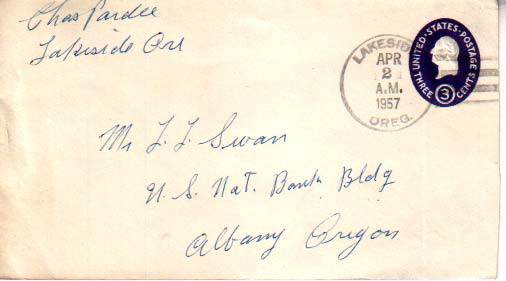 Chas Pardee
Lakeside Ore
LAKESIDE
APR
2
A.M.
1957
OREG.
UNITED·STATES·POSTAGE
THREE 3 CENTS
Mr L. L. Swan
U. S. Nat. Bank Bldg
Albany Oregon